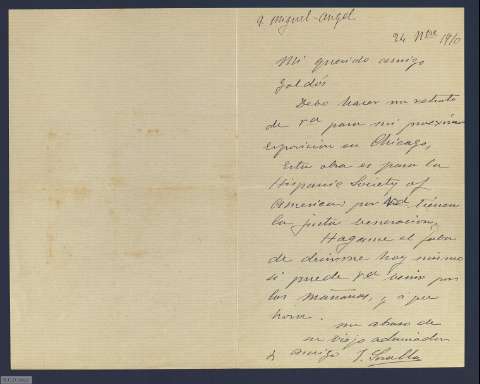 9. Miguel-Angel
24 Nbre 1910
Mi querido amigo
Galdós
Debo hacer un retrato
de Vd para mi próxima
exposicion en Chicago,
Esta obra es para la
Hispanic Society of
America; por Vd tienen
la justa veneración,
Hagame el favor
de decirme hoy mismo
si puede Vd venir por
las mañanas, y a que
hora.
un abrazo de
su viejo admirador
y amigo J. Sorolla